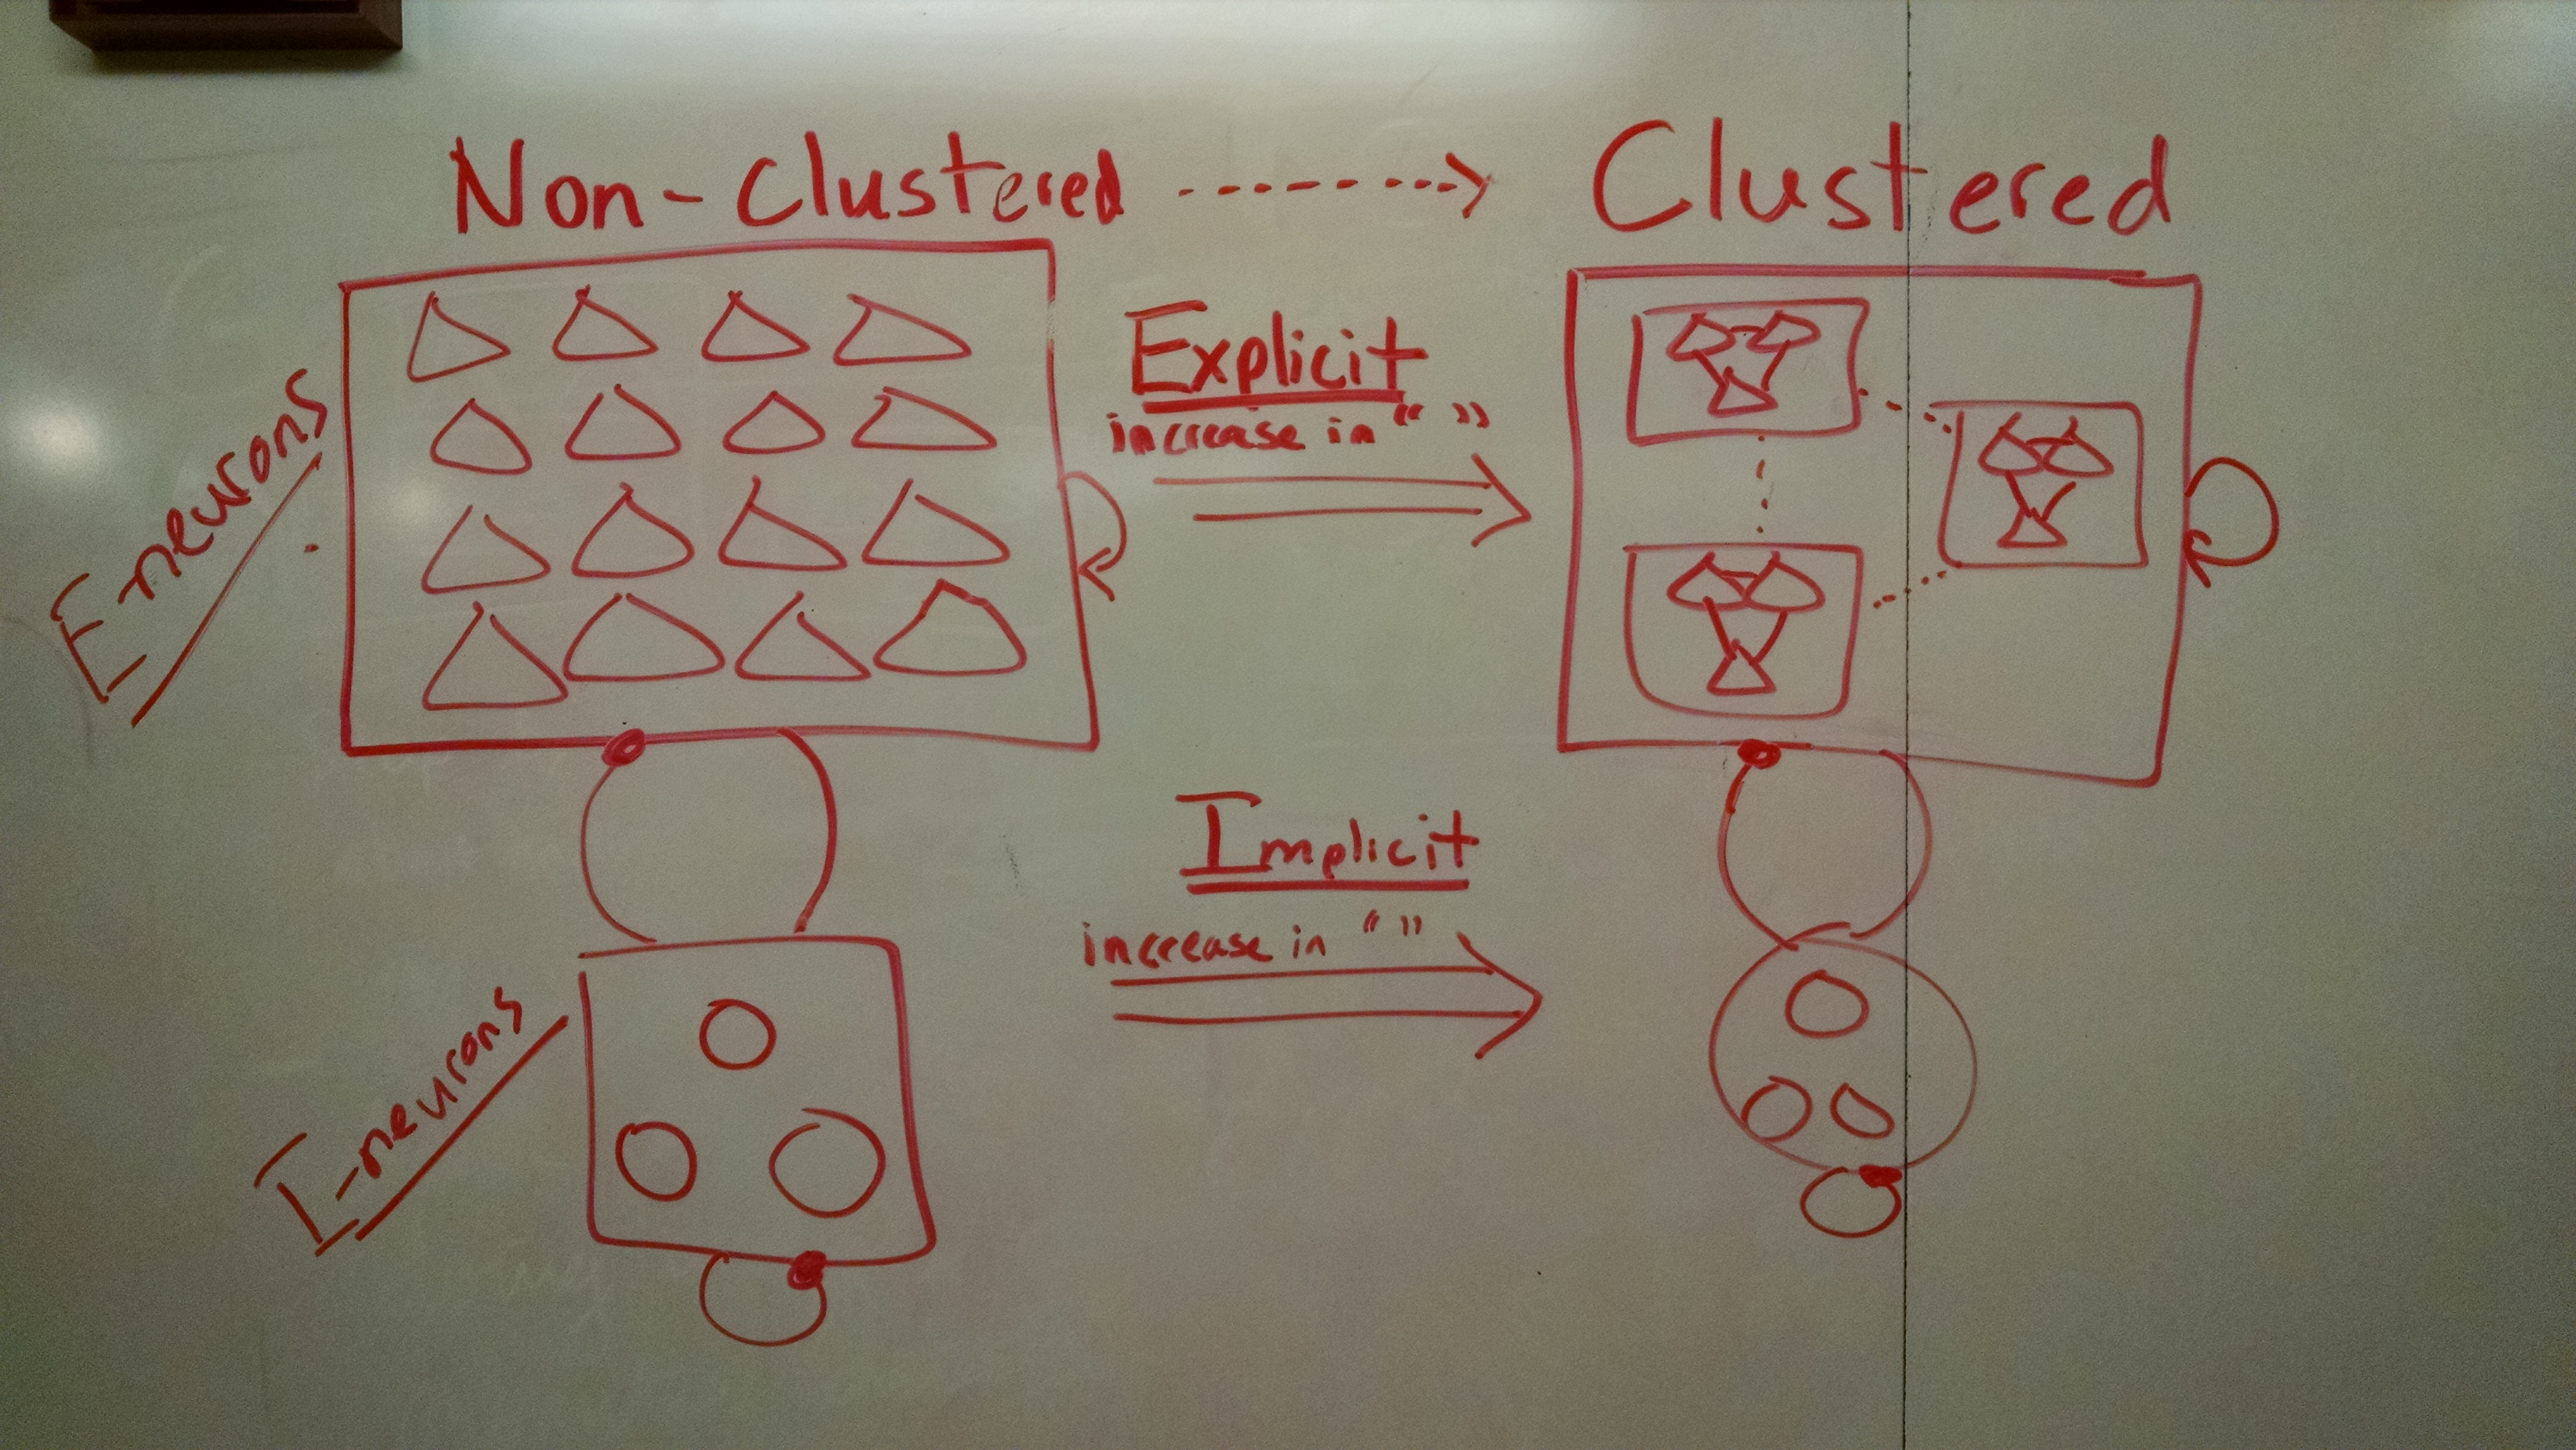 Non-Clustered
Clustered
E-neurons
Explicit
increase in “ ”
Implicit
increase in “ ”
I-neurons